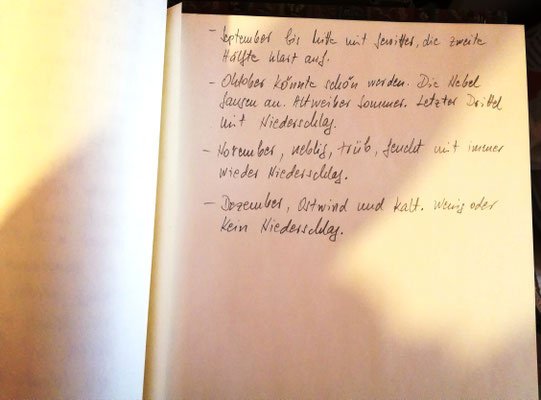 - September bis Mitte mit Gewitter, die zweite
Hälfte klart auf.
- Oktober könnte schön werden. Die Nebel
fangen an. Altweiber Sommer. Letzter Drittel
mit Niederschlag.
- November, neblig, trüb, feucht mit immer
wieder Niederschlag.
- Dezember, Ostwind und kalt. Wenig oder
kein Niederschlag.